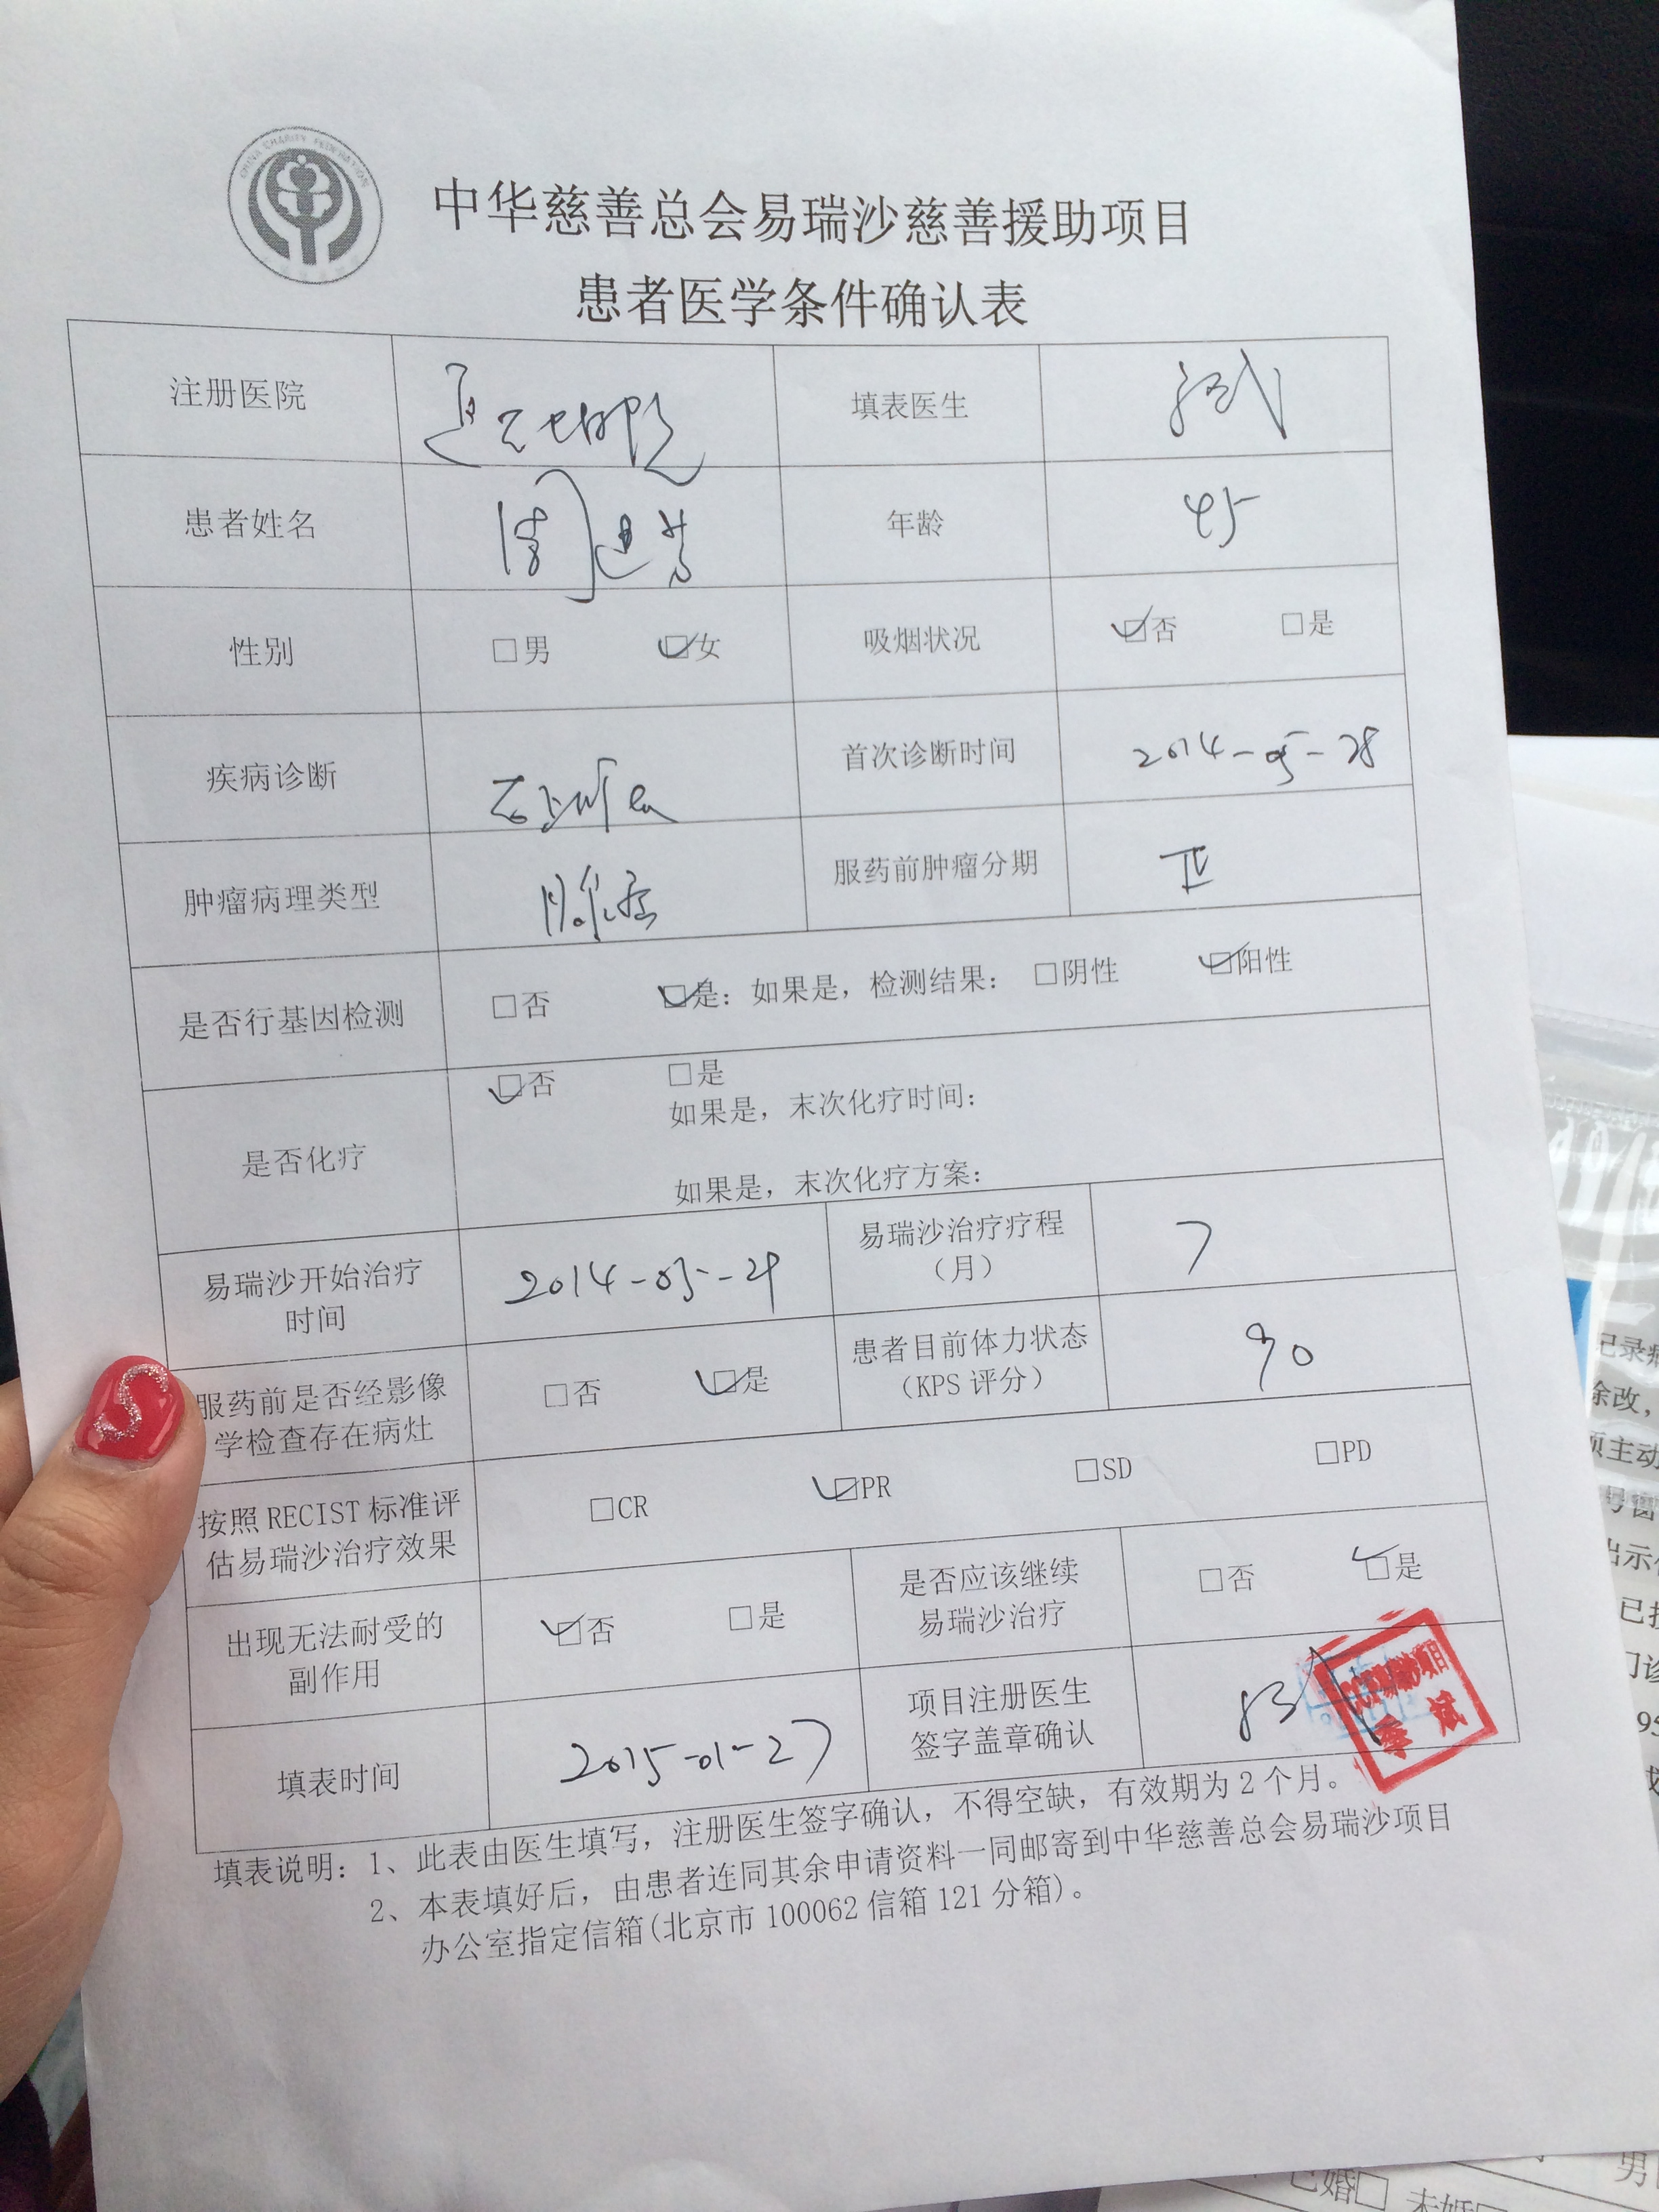 CHINA CHARITY FEDERATION
中华慈善总会易瑞沙慈善援助项目
患者医学条件确认表
注册医院 填表医生
患者姓名 年龄 45
性别 □男 ☑女 吸烟状况 ☑否 □是
疾病诊断 首次诊断时间 2014-05-28
肿瘤病理类型 腺癌 服药前肿瘤分期 Ⅳ
是否行基因检测 □否 ☑是：如果是，检测结果： □阴性 ☑阳性
是否化疗 ☑否 □是
如果是，末次化疗时间：
如果是，末次化疗方案：
易瑞沙开始治疗
时间
2014-05-29
易瑞沙治疗疗程
（月）
7
服药前是否经影像
学检查存在病灶
□否 ☑是
患者目前体力状态
（KPS 评分）
90
按照 RECIST 标准评
估易瑞沙治疗效果
□CR ☑PR □SD □PD
出现无法耐受的
副作用
☑否 □是
是否应该继续
易瑞沙治疗
□否 ☑是
填表时间 2015-01-27
项目注册医生
签字盖章确认
易瑞沙项目
填表说明：1、此表由医生填写，注册医生签字确认，不得空缺，有效期为 2 个月。
2、本表填好后，由患者连同其余申请资料一同邮寄到中华慈善总会易瑞沙项目
办公室指定信箱(北京市 100062 信箱 121 分箱)。
记录
涂改，
主动
出示
95
已婚□ 未婚
男